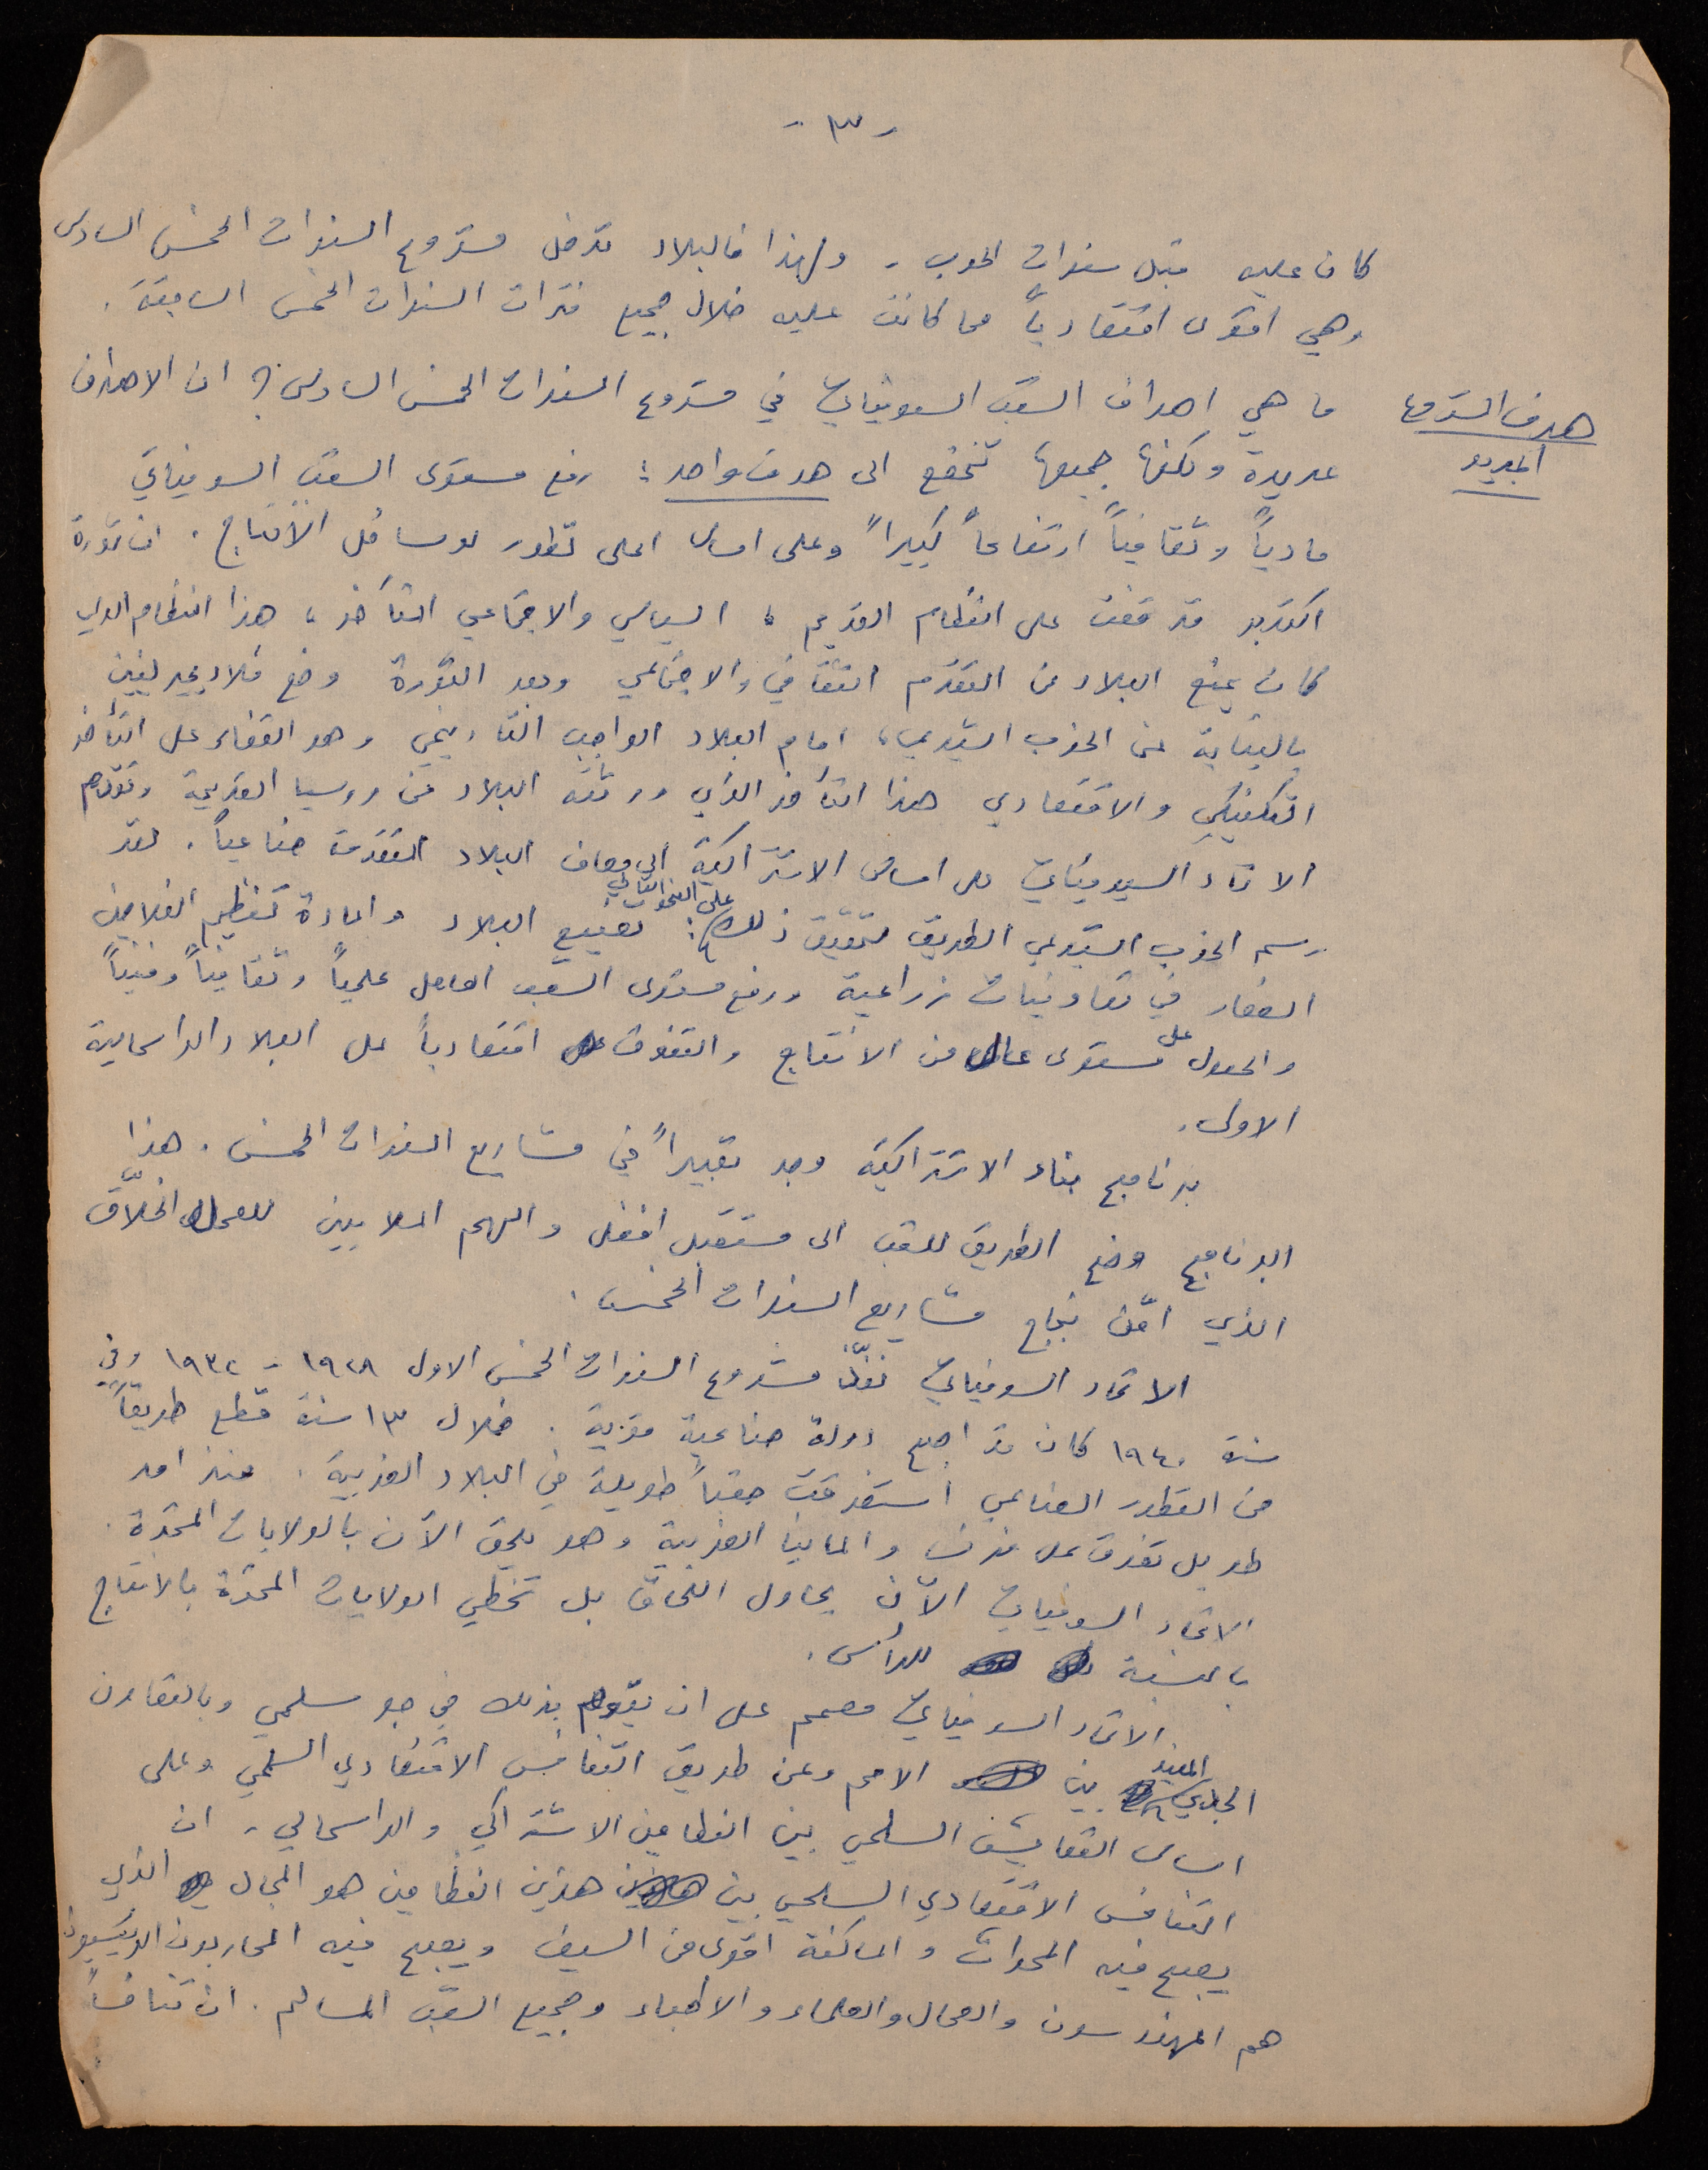 - ٣ -
كان عليه قبل سنوات الحرب. ولهذا فالبلاد تدخل مشروع السنوات الخمس السادس
وهي اقوى اقتصادياً مما كانت عليه خلال جميع فترات السنوات الخمس السابقة.
هدف المشروع
الجديد
ما هي اهداف الشعب السوفياتي في مشروع السنوات الخمس السادس؟ ان الاهداف
عديدة ولكنها جميعها تخضع الى هدف واحد: رفع مستوى الشعب السوفياتي
مادياً وثقافياً ارتفاعاً كبيراً وعلى اساس اعلى تطور لوسائل الانتاج. ان ثورة
اكتوبر قد قضت على النظام القديم، السياسي والاجتماعي المتأخر، هذا النظام الذي
كان يمنع البلاد من التقدم الثقافي والاجتماعي وبعد الثورة وضع فلاديمير لينين
بالنيابة عن الحزب الشيوعي، امام البلاد الواجب التاريخي وهو القضاء على التأخر
التكنيكي والاقتصادي هذا التأخر الذي ورثته البلاد عن روسيا القديمة وتقدم
الاتحاد السيوفياتي على اساس الاشتراكية الى مصاف البلاد المتقدمة صناعياً. لقد
رسم الحزب الشيوعي الطريق لتحقيق ذلك على النحو التالي: تصنيع البلاد واعادة تنظيم الفلاحين
الصغار في تعاونيات زراعية ورفع مستوى الشعب العامل علمياً وثقافياً وفنياً
والحصول على مستوى عال من الانتاج والتفوق اقتصادياً على البلاد الراسمالية
الاولى.
برنامج بناء الاشتراكية وجد تعبيراً في مشاريع السنوات الخمس. هذا
البرنامج وضع الطريق للشعب الى مستقبل افضل والهم الملايين للعمل الخلّاق
الذي امّن نجاح مشاريع السنوات الخمس.
الاتحاد السوفياتي نفّذ مشروع السنوات الخمس الاول ١٩٢٨ - ١٩٣٢ وفي
سنة ١٩٤٠ كان قد اصبح دولة صناعية قوية. خلال ١٣ سنة قطع طريقاً
من التطور الصناعي استغرقت حقباً طويلة في البلاد الغربية. منذ امد
طويل تفوق على فرنسا والمانيا الغربية وهو يلحق الآن بالولايات المتحدة.
الاتحاد السوفياتي الآن يحاول اللحاق بل تخطي الولايات المتحدة بالانتاج
بالنسبة للرأس.
الاتحاد السوفياتي مصمم على ان يقوم بذلك في جو سلمي وبالتعاون
الجدي المفيد بين الامم وعن طريق التنافس الاقتصادي السلمي وعلى
اساس التعايش السلمي بين النظامين الاشتراكي والراسمالي. ان
التنافس الاقتصادي السلمي بين هذين النظامين هو المجال الذي
يصبح فيه المحراث والماكنة اقوى من السيف ويصبح فيه المحاربون الرئيسيون
هم المهندسون والعمال والعلماء والاطباء وجميع الشعب المسالم. ان تنافساً